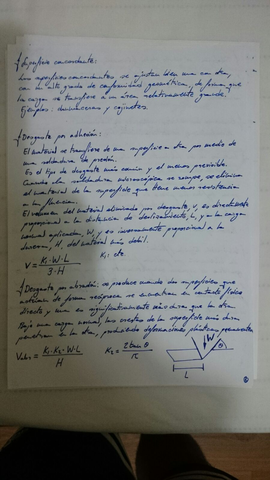 Superficie concordante:
Las superficies concordantes se ajustan bien una con otra,
con un alto grado de conformidad geométrica, de forma que
la carga se transfiere a un área relativamente grande.
Ejemplos: chumaceras y cojinetes
Desgaste por adhesión:
El material se transfiere de una superficie a otra por medio de
una soldadura de presión.
Es el tipo de desgaste más común y el menos previsible.
Cuando la soldadura microscópica se rompe, se elimina
el material de la superficie que tiene menos resistencia
a la fluencia.
El volumen del material eliminado por desgaste, V, es directamente
proporcional a la distancia de deslizamiento, L, y a la carga
normal aplicada, W, y es inversamente proporcional a la
dureza, H, del material más débil.
V = K₁·W·L / 3·H K₁: cte
Desgaste por abrasión: se produce cuando dos superficies que
actúan de forma recíproca se encuentran en contacto físico
directo y una es significativamente más dura que la otra.
Bajo una carga normal, las crestas de la superficie más dura
penetran en la otra, produciendo deformaciones plásticas permanentes
V = K₁·K₂·W·L / H K₂ = 2 tan θ / π
W θ
L